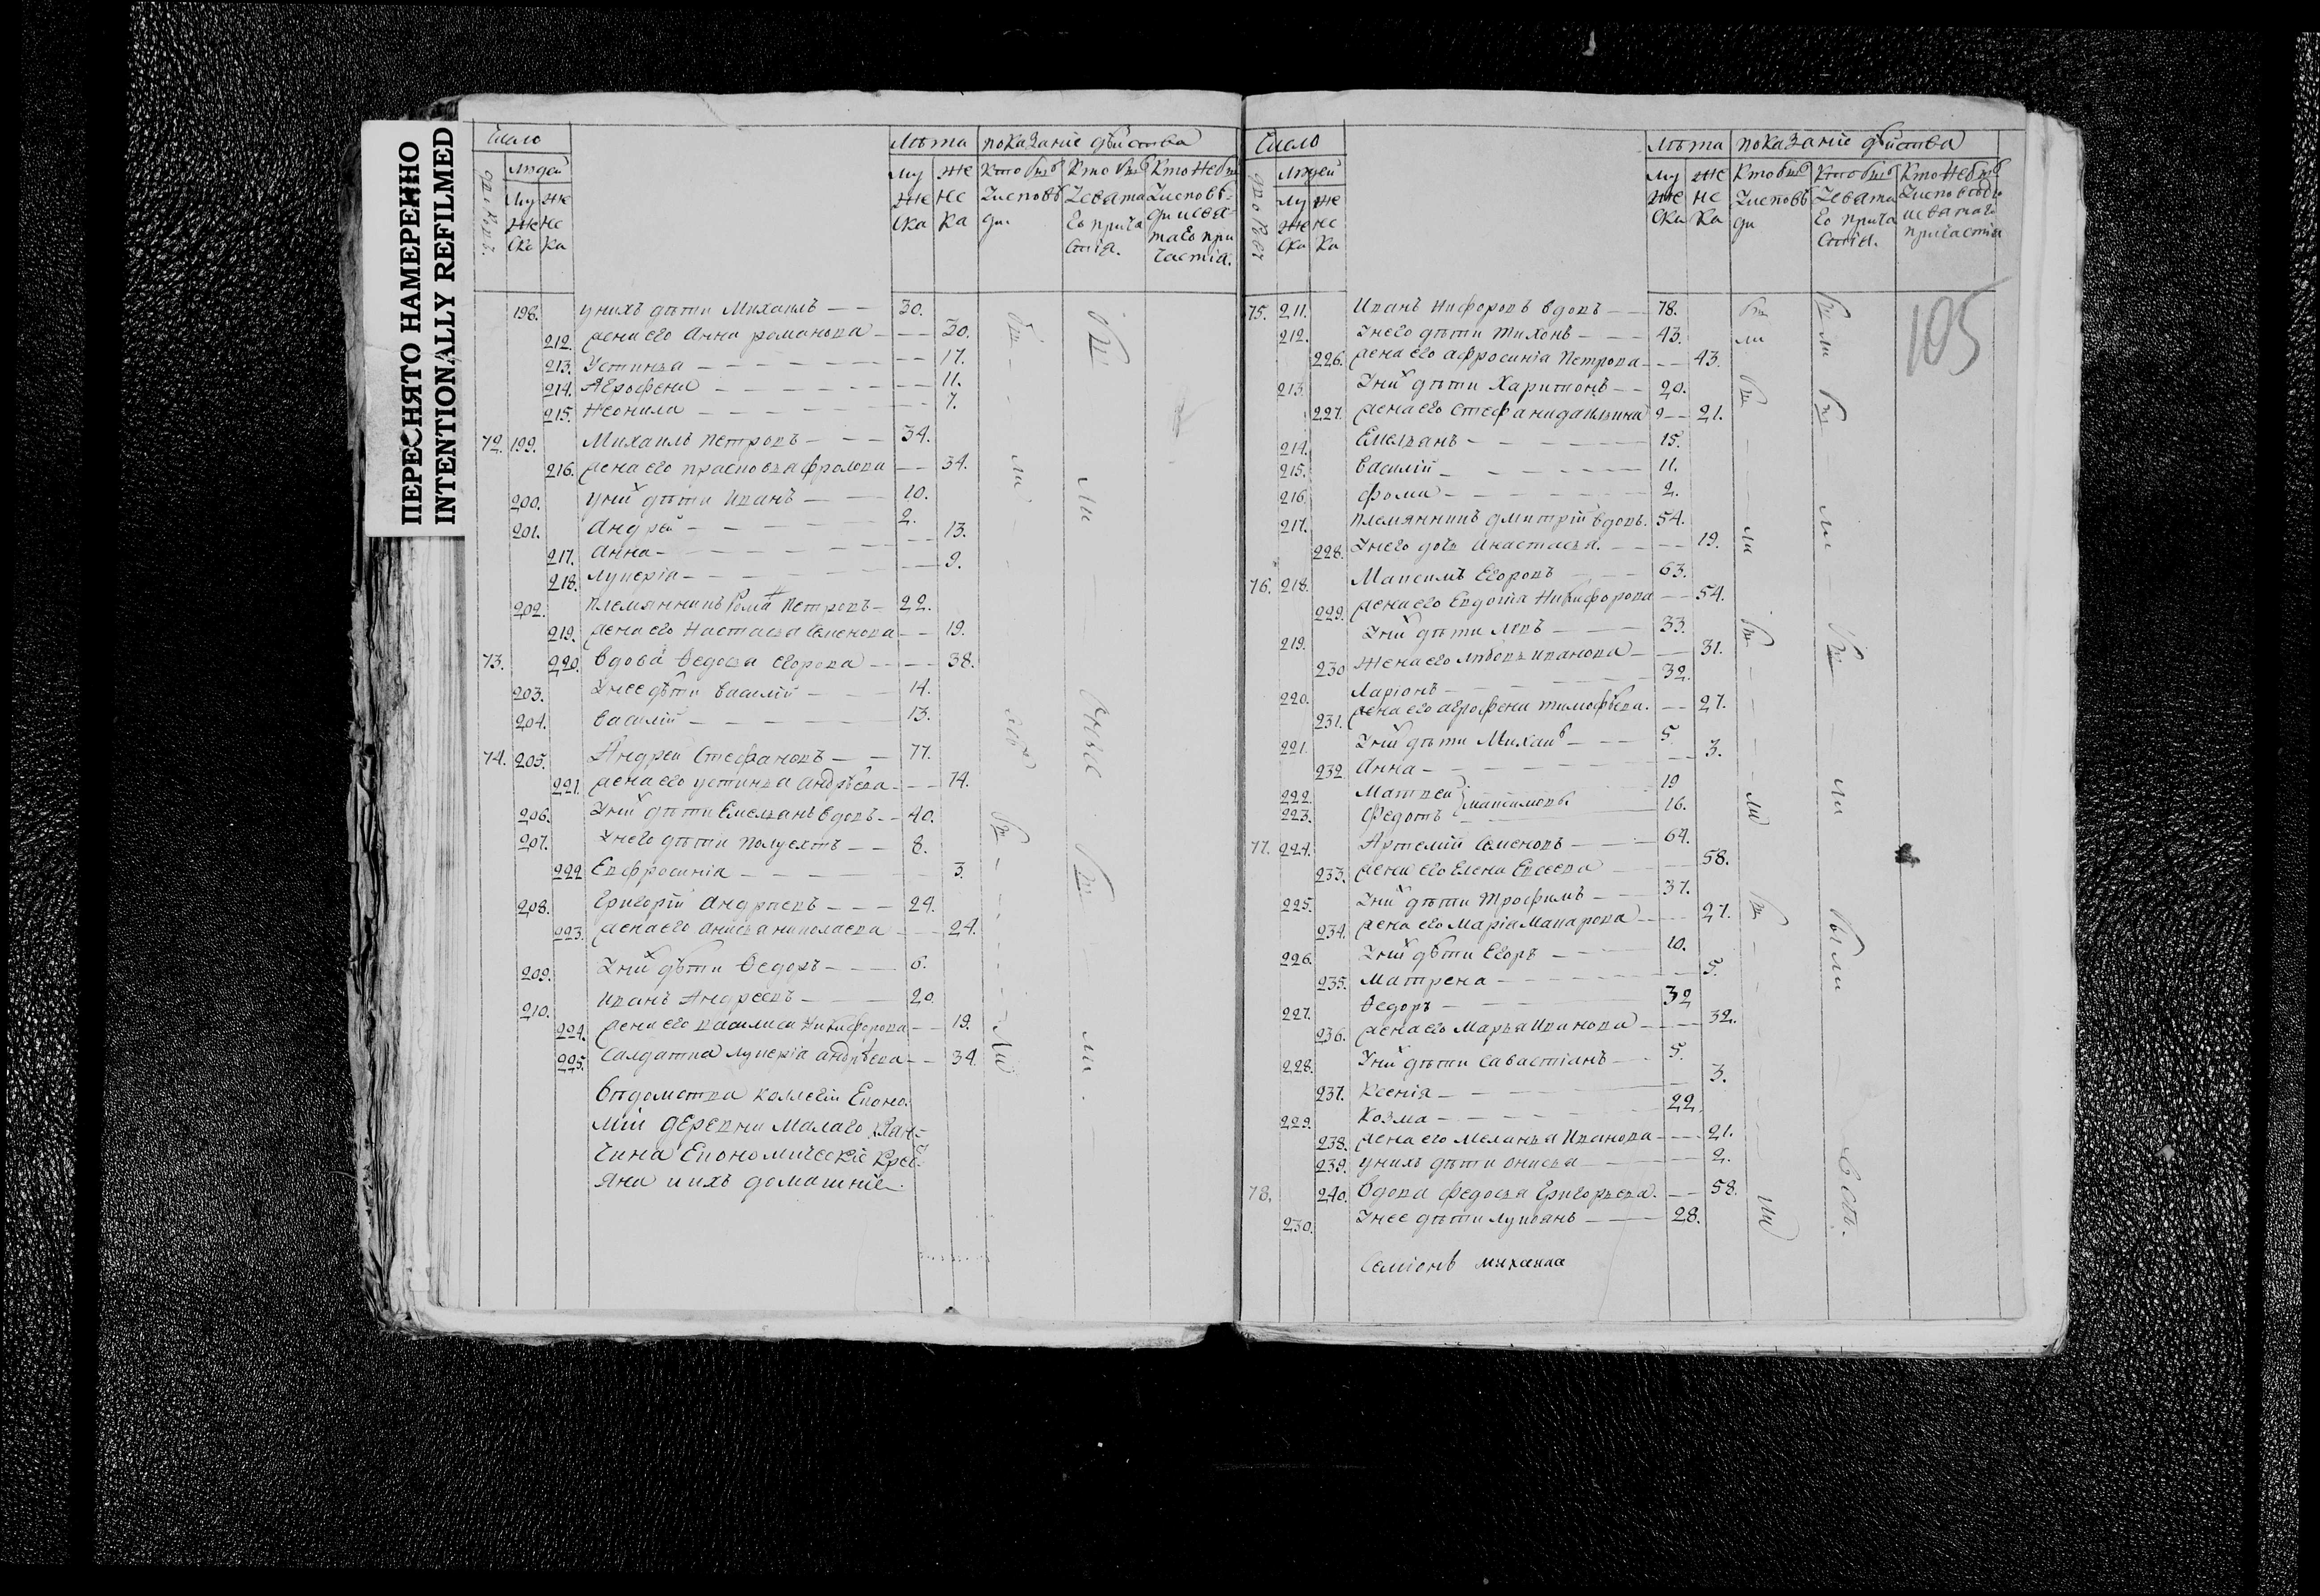 ПЕРЕСНЯТО НАМЕРЕННО
INTENTIONALLY REFILMED
Число
людей
му же
жес нс
ска ка
Лѣта показаніе дѣйства
му же Кто былъ Кто былъ Кто не былъ
198. у нихъ дѣти Михаилъ — — 30.
212. жена его Анна романова — — 30.
213. Устинья — — 17.
214. Агрофена — — 11.
215. Неонила — — 7.
72. 199. Михаилъ Петровъ — — 34.
216. жена его прасковья фролова — — 34.
200. у них дѣти Иванъ — — 10.
201. Андрей — — 2.
217. Анна — — 13.
218. лукерія — — 9.
202. племянникъ Рома Петровъ — 22.
219. жена его Настасья Семенова — — 19.
73. 220. вдова Ѳедосья Егорова — — 38.
203. У нее дѣти василій — — 14.
204. василій — — 13.
74. 205. Андреи Стефановъ — — 77.
221. жена его устинья андрѣева — — 74.
206. У них дѣти Емельянъ вдовъ — 40.
207. У него дѣти полуехтъ — — 8.
222 Евфросинія — — 3.
208. Григорій Андреевъ — — 24.
223. жена его анисья николаева — — 24.
209. У них дѣти Ѳедоръ — — 6.
210. Иванъ Андреевъ — — 20.
224. жена его василиса Никифорова — — 19.
225. Салдатка лукерія андрѣева — — 34.
Вѣдомства коллегіи Еконо
міи деревни Малаго
чина Економическіе крес
яна и ихъ домашніе
Число
людей
Лѣта показаніе дѣйства
105
75. 211. Иванъ Никфоровъ вдовъ — — 78.
212. У него дѣти Тихонъ — — 43.
226. жена его афросинія Петрова — — 43.
213. У них дѣти Харитонъ — — 20.
227. жена его Стефанида — — 21.
214. Емельянъ — — 15.
215. василій — — 11.
216. фома — — 2.
217. племянникъ дмитрій вдовъ. 54.
228. У него дочь анастасья. — — 19.
76. 218. Максимъ Егоровъ — 63.
229. жена его Евдотья Никифорова — — 54.
219. У них дѣти левъ — — 33.
230 жена его любовь иванова — 31.
220. Ларіонъ — — 32.
231. жена его агрофена тимофѣева. — — 27.
221. У них дѣти Михаи — — 5.
232. Анна — — 3.
222. Матвеи 19
223. Федотъ } максимовы 16.
77. 224. Артемій Семеновъ — — 64.
233. жена его Елена Евсеева — 58.
225. У них дѣти Трофимъ — — 37.
234. жена его Марія Макарова — — 27.
226. У них дѣти Егоръ — — 10.
235. Матрена — — 5.
227. Ѳедоръ — — 32
236. жена его Марья Иванова — — 32.
228. У них дѣти Савастіанъ — — 5.
237. Ксенія — — 3.
229. Козма — — 22.
238. жена его Меланья Иванова — — 21.
239. у нихъ дѣти Онисья — — 2.
78. 240. Вдова федосья Григорьева. — — 58.
230. У нее дѣти лукьянъ — — 28.
Семіонъ михаила